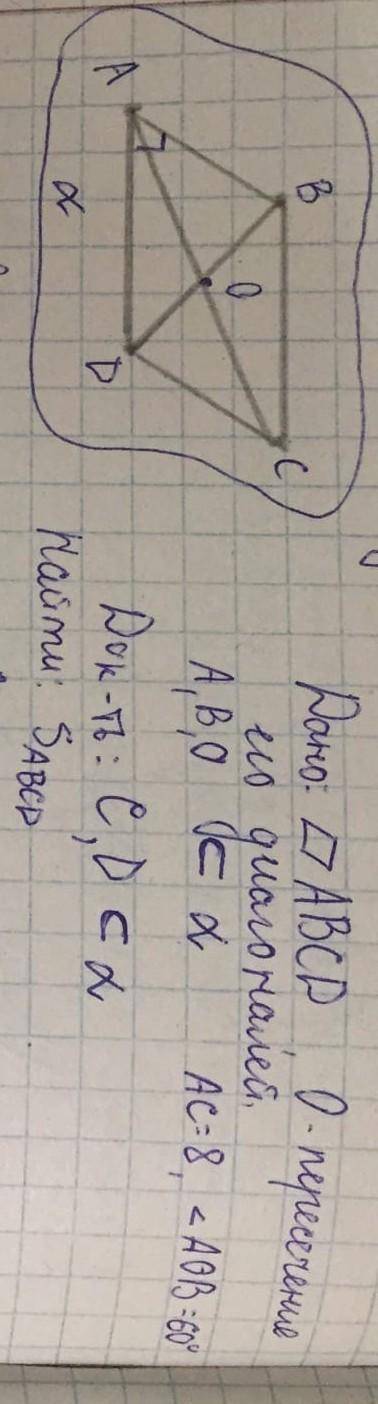 B
C
O
A
D
α
Дано: ▱ ABCD, O - пересечение
его диагоналей,
A, B, O ⊂ α AC = 8, ∠AOB = 60°
Док-ть: C, D ⊂ α
Найти: S ABCD